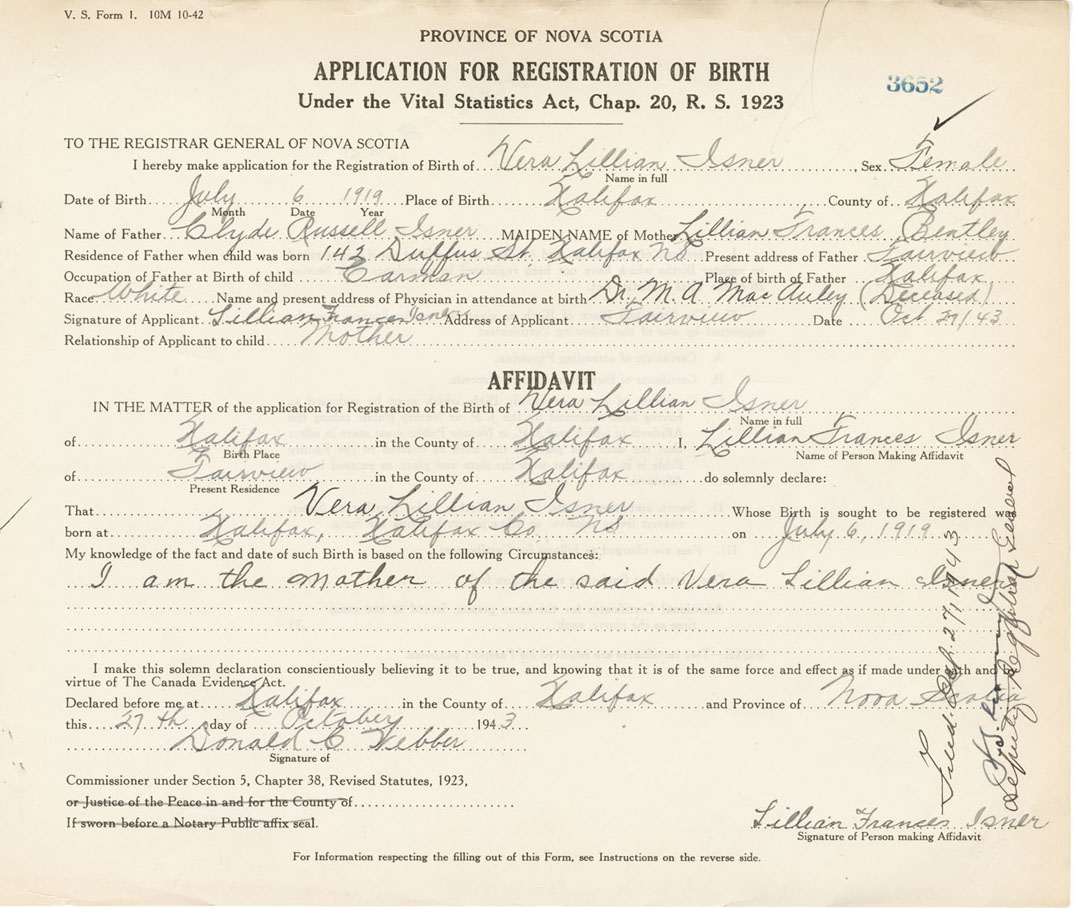 V. S. Form 1. 10M 10-42
PROVINCE OF NOVA SCOTIA
APPLICATION FOR REGISTRATION OF BIRTH
3652
Under the Vital Statistics Act, Chap. 20, R. S. 1923
TO THE REGISTRAR GENERAL OF NOVA SCOTIA
I hereby make application for the Registration of Birth of Vera Lillian Isner, Sex Female
Name in full
Date of Birth July 6 1919 Place of Birth Halifax County of Halifax
Month Date Year
Name of Father Clyde Russell Isner MAIDEN NAME of Mother Lillian Frances Bentley
Residence of Father when child was born 142 Duffus St. Halifax NS Present address of Father Fairview
Occupation of Father at Birth of child Carman Place of birth of Father Halifax
Race White Name and present address of Physician in attendance at birth Dr. M. A MacAuley (Deceased)
Signature of Applicant Lillian Frances Isner Address of Applicant Fairview Date Oct 27/43
Relationship of Applicant to child Mother
AFFIDAVIT
IN THE MATTER of the application for Registration of the Birth of Vera Lillian Isner
Name in full
of Halifax in the County of Halifax I, Lillian Frances Isner
Birth Place Name of Person Making Affidavit
of Fairview in the County of Halifax do solemnly declare:
Present Residence
That Vera Lillian Isner Whose Birth is sought to be registered was
born at Halifax, Halifax Co. NS on July 6, 1919
My knowledge of the fact and date of such Birth is based on the following Circumstances:
I am the mother of the said Vera Lillian Isner
I make this solemn declaration conscientiously believing it to be true, and knowing that it is of the same force and effect as if made under oath and by
virtue of The Canada Evidence Act.
Declared before me at Halifax in the County of Halifax and Province of Nova Scotia
this 27th day of October 1943
Donald C Webber
Signature of
Commissioner under Section 5, Chapter 38, Revised Statutes, 1923,
or Justice of the Peace in and for the County of
If sworn before a Notary Public affix seal.
Lillian Frances Isner
Signature of Person making Affidavit
For Information respecting the filling out of this Form, see Instructions on the reverse side.
Deputy Registrar General